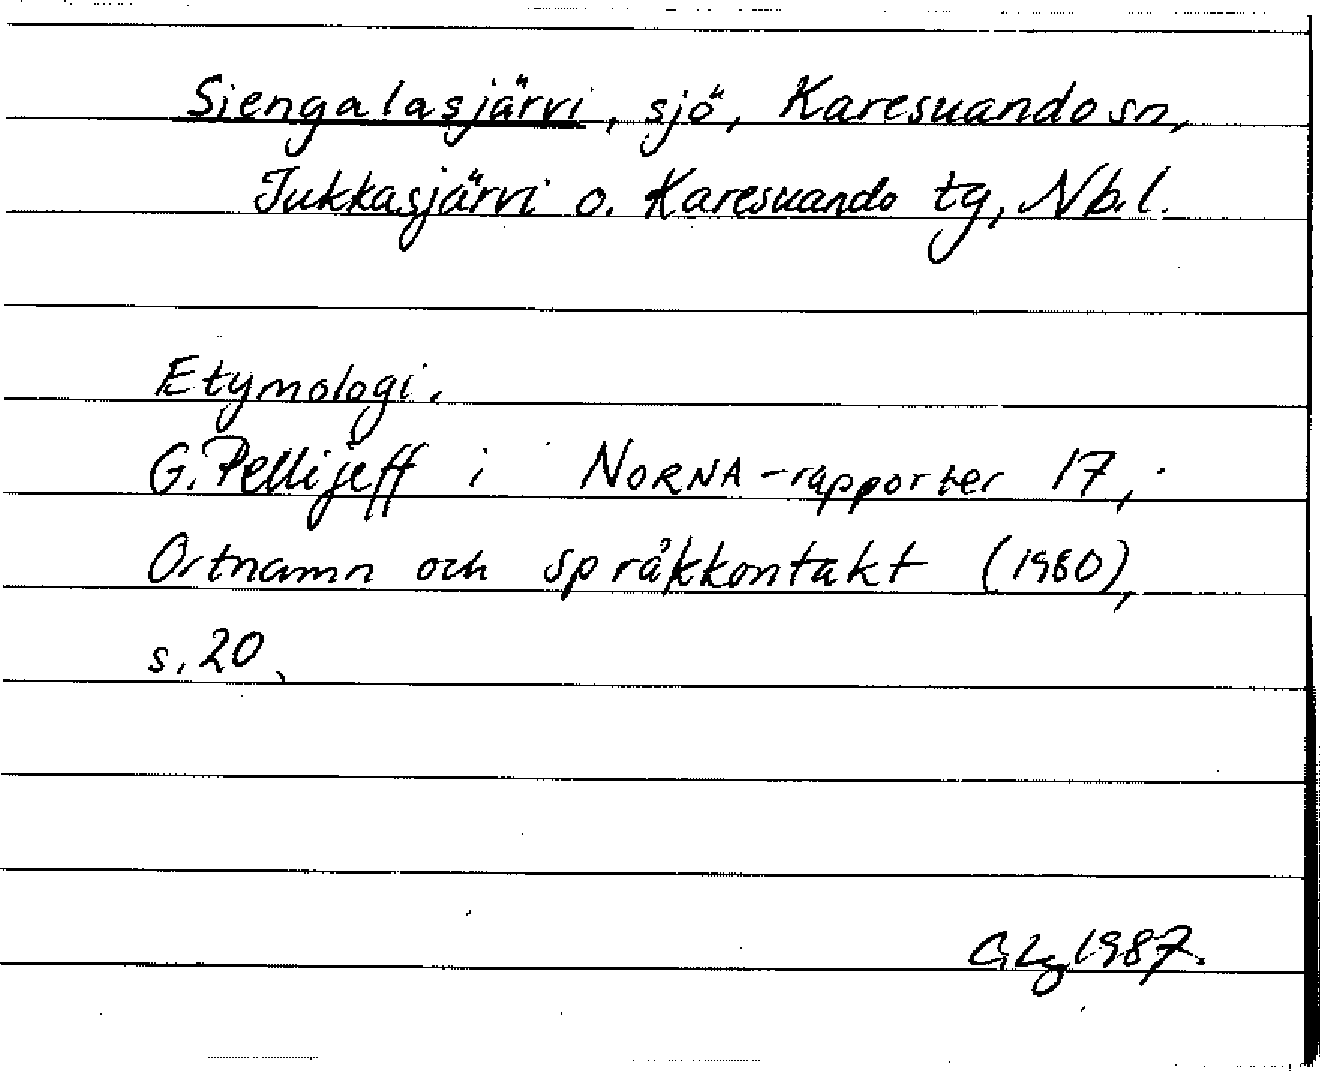 Siengalasjärvi, sjö, Karesuando sn,
Jukkasjärvi o. Karesuando tg, Nb.l.
Etymologi.
G. Pellijeff i NORNA-rapporter 17,
Ortnamn och språkkontakt (1980),
s. 20.
1987.